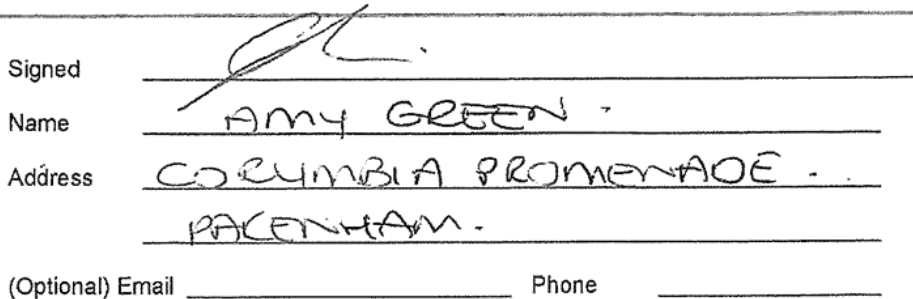 Signed
Name AMY GREEN.
Address CORUMBIA PROMENADE.
PAKENHAM.
(Optional) Email Phone